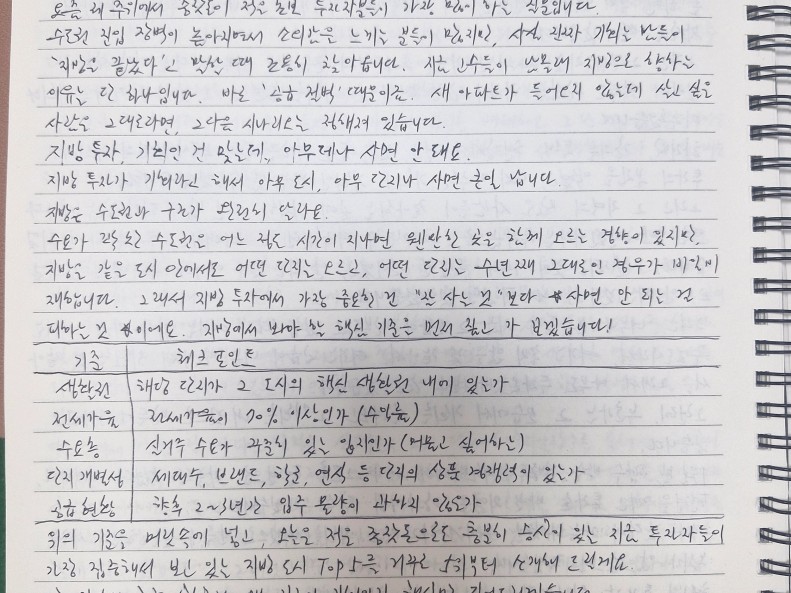 요즘 제 주위에서 종잣돈이 적은 초보 투자자분들이 가장 많이 하는 질문입니다.
수도권 진입 장벽이 높아지면서 소외감을 느끼는 분들이 많지만, 사실 진짜 기회는 남들이
'지방은 끝났다'고 말할 때 조용히 찾아옵니다. 지금 고수들이 남몰래 지방으로 향하는
이유는 단 하나입니다. 바로 '공급 절벽' 때문이죠. 새 아파트가 들어오지 않는데 살고 싶은
사람은 그대로라면, 그다음 시나리오는 정해져 있습니다.
지방 투자, 기회인 건 맞는데, 아무데나 사면 안 돼요.
지방 투자가 기회라고 해서 아무 도시, 아무 단지나 사면 큰일 납니다.
지방은 수도권과 구조가 완전히 달라요.
수요가 꾸준한 수도권은 어느 정도 시간이 지나면 웬만한 곳은 함께 오르는 경향이 있지만,
지방은 같은 도시 안에서도 어떤 단지는 오르고, 어떤 단지는 수년째 그대로인 경우가 비일비
재합니다. 그래서 지방 투자에서 가장 중요한 건 "잘 사는 것"보다 사면 안 되는 건
피하는 것 이에요. 지방에서 봐야 할 핵심 기준을 먼저 짚고 가 보겠습니다!
기준 체크 포인트
생활권 해당 단지가 그 도시의 핵심 생활권 내에 있는가
전세가율 전세가율이 70% 이상인가 (수익률)
수요층 실거주 수요가 꾸준히 있는 입지인가 (머물고 싶어하는)
단지 개별성 세대수, 브랜드, 학군, 연식 등 단지의 상품 경쟁력이 있는가
공급 현황 향후 2~3년간 입주 물량이 과하지 않은가
위의 기준을 머릿속에 넣고, 오늘은 적은 종잣돈으로도 충분히 승산이 있는 지금 투자자들이
가장 집중해서 보고 있는 지방 도시 Top 5를 거꾸로 5위부터 소개해 드릴게요.